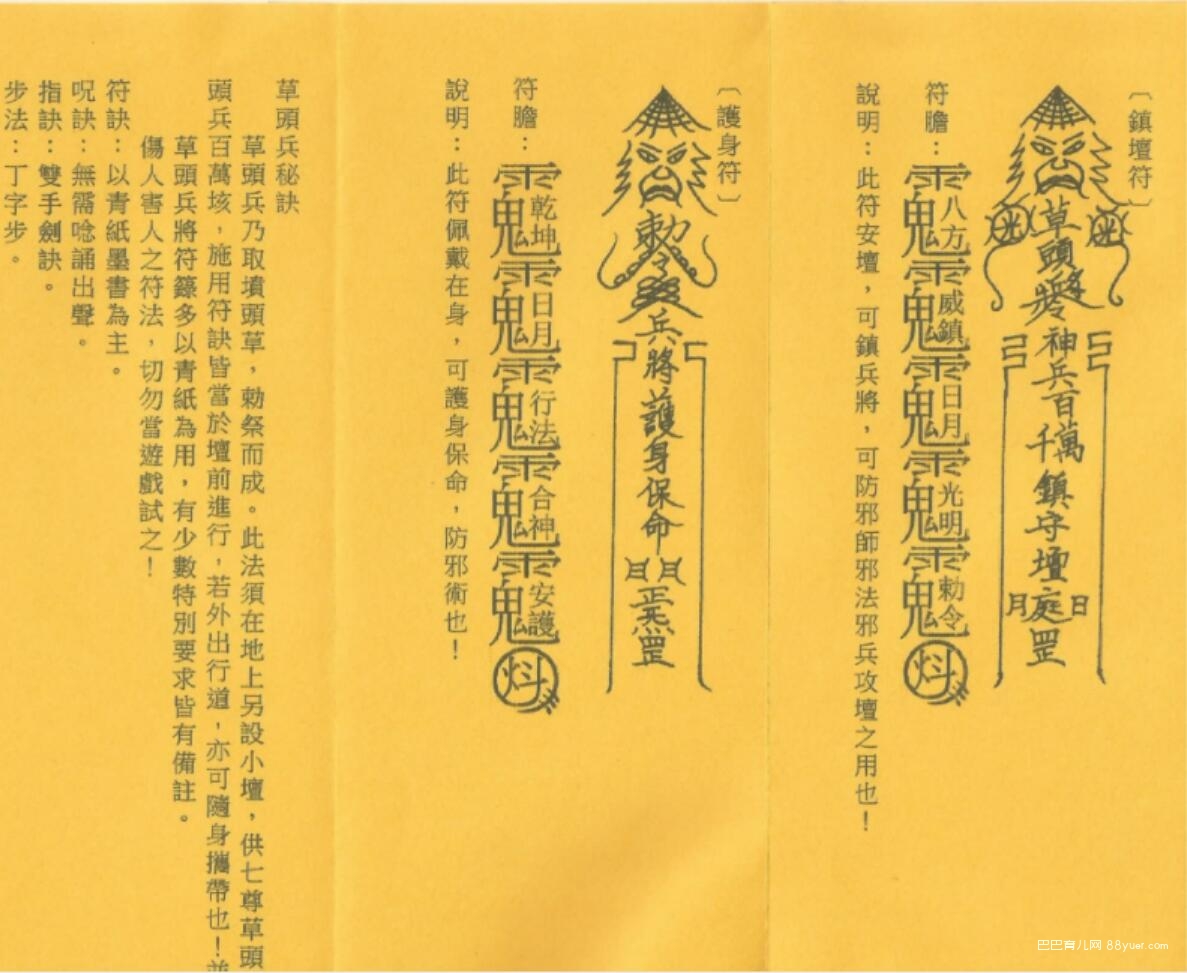 〔鎮壇符〕
草頭將令神兵百萬千鎮守壇庭罡
日
月
符膽：
八方威鎮日月光明勅令
說明：此符安壇，可鎮兵將，可防邪師邪法邪兵攻壇之用也！
〔護身符〕
勅
兵將護身保命
日月
正炁罡
符膽：
乾坤日月行法合神安護
說明：此符佩戴在身，可護身保命，防邪術也！
草頭兵秘訣
草頭兵乃取墳頭草，勅祭而成。此法須在地上另設小壇，供七尊草頭
頭兵百萬垓，施用符訣皆當於壇前進行，若外出行道，亦可隨身攜帶也！並
草頭兵將符籙多以青紙為用，有少數特別要求皆有備註。
傷人害人之符法，切勿當遊戲試之！
符訣：以青紙墨書為主。
呪訣：無需唸誦出聲。
指訣：雙手劍訣。
步法：丁字步。
巴巴育儿网 88yuer.com